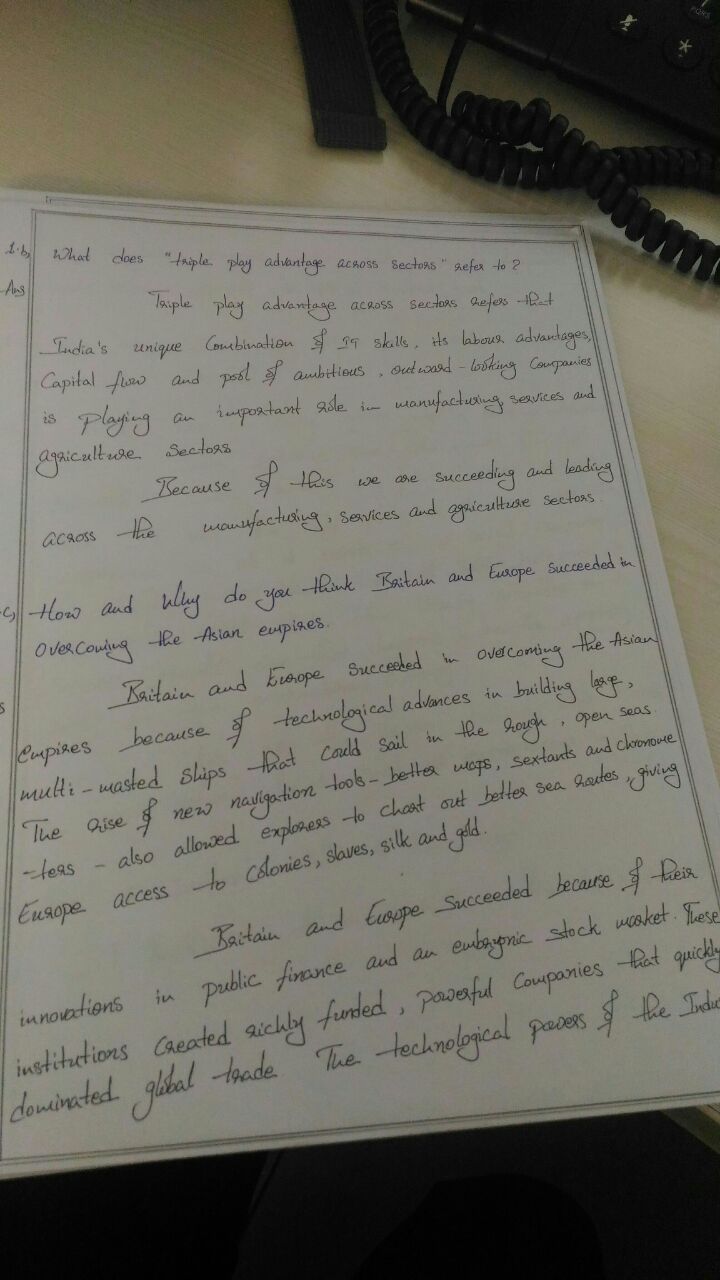 PQRS
*
1.b, What does "triple play advantage across sectors" refer to?
Ans Triple play advantage across sectors refers that
India's unique Combination of skills, its labour advantages,
Capital flow and pool of ambitious, outward-looking Companies
is playing an important role in manufacturing, services and
agriculture sectors
Because of this we are succeeding and leading
across the manufacturing, services and agriculture sectors.
c, How and Why do you think Britain and Europe Succeeded in
overcoming the Asian empires.
s Britain and Europe Succeeded in overcoming the Asian
empires because of technological advances in building large,
multi-masted Ships that Could Sail in the rough, open seas.
The rise of new navigation tools - better maps, sextants and chronome
-ters - also allowed explorers to chart out better sea routes, giving
Europe access to Colonies, slaves, silk and gold.
Britain and Europe Succeeded because of their
innovations in public finance and an embryonic stock market. These
institutions Created richly funded, powerful Companies that quickly
dominated global trade. The technological powers of the Indu